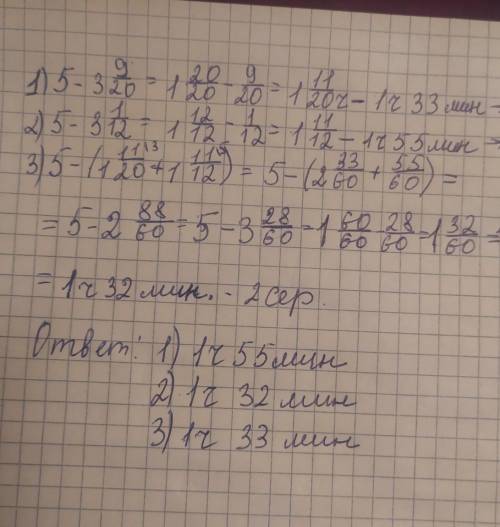 1) 5 - 3 9/20 = 1 20/20 - 9/20 = 1 11/20 ч - 1ч 33 мин -
2) 5 - 3 1/12 = 1 12/12 - 1/12 = 1 11/12 - 1ч 55 мин -
3) 5 - (1 11/20 + 1 11/12) = 5 - (2 33/60 + 55/60) =
= 5 - 2 88/60 = 5 - 3 28/60 = 1 60/60 - 28/60 = 1 32/60 =
= 1ч 32 мин. - 2 сер.
Ответ: 1) 1ч 55 мин
2) 1ч 32 мин
3) 1ч 33 мин